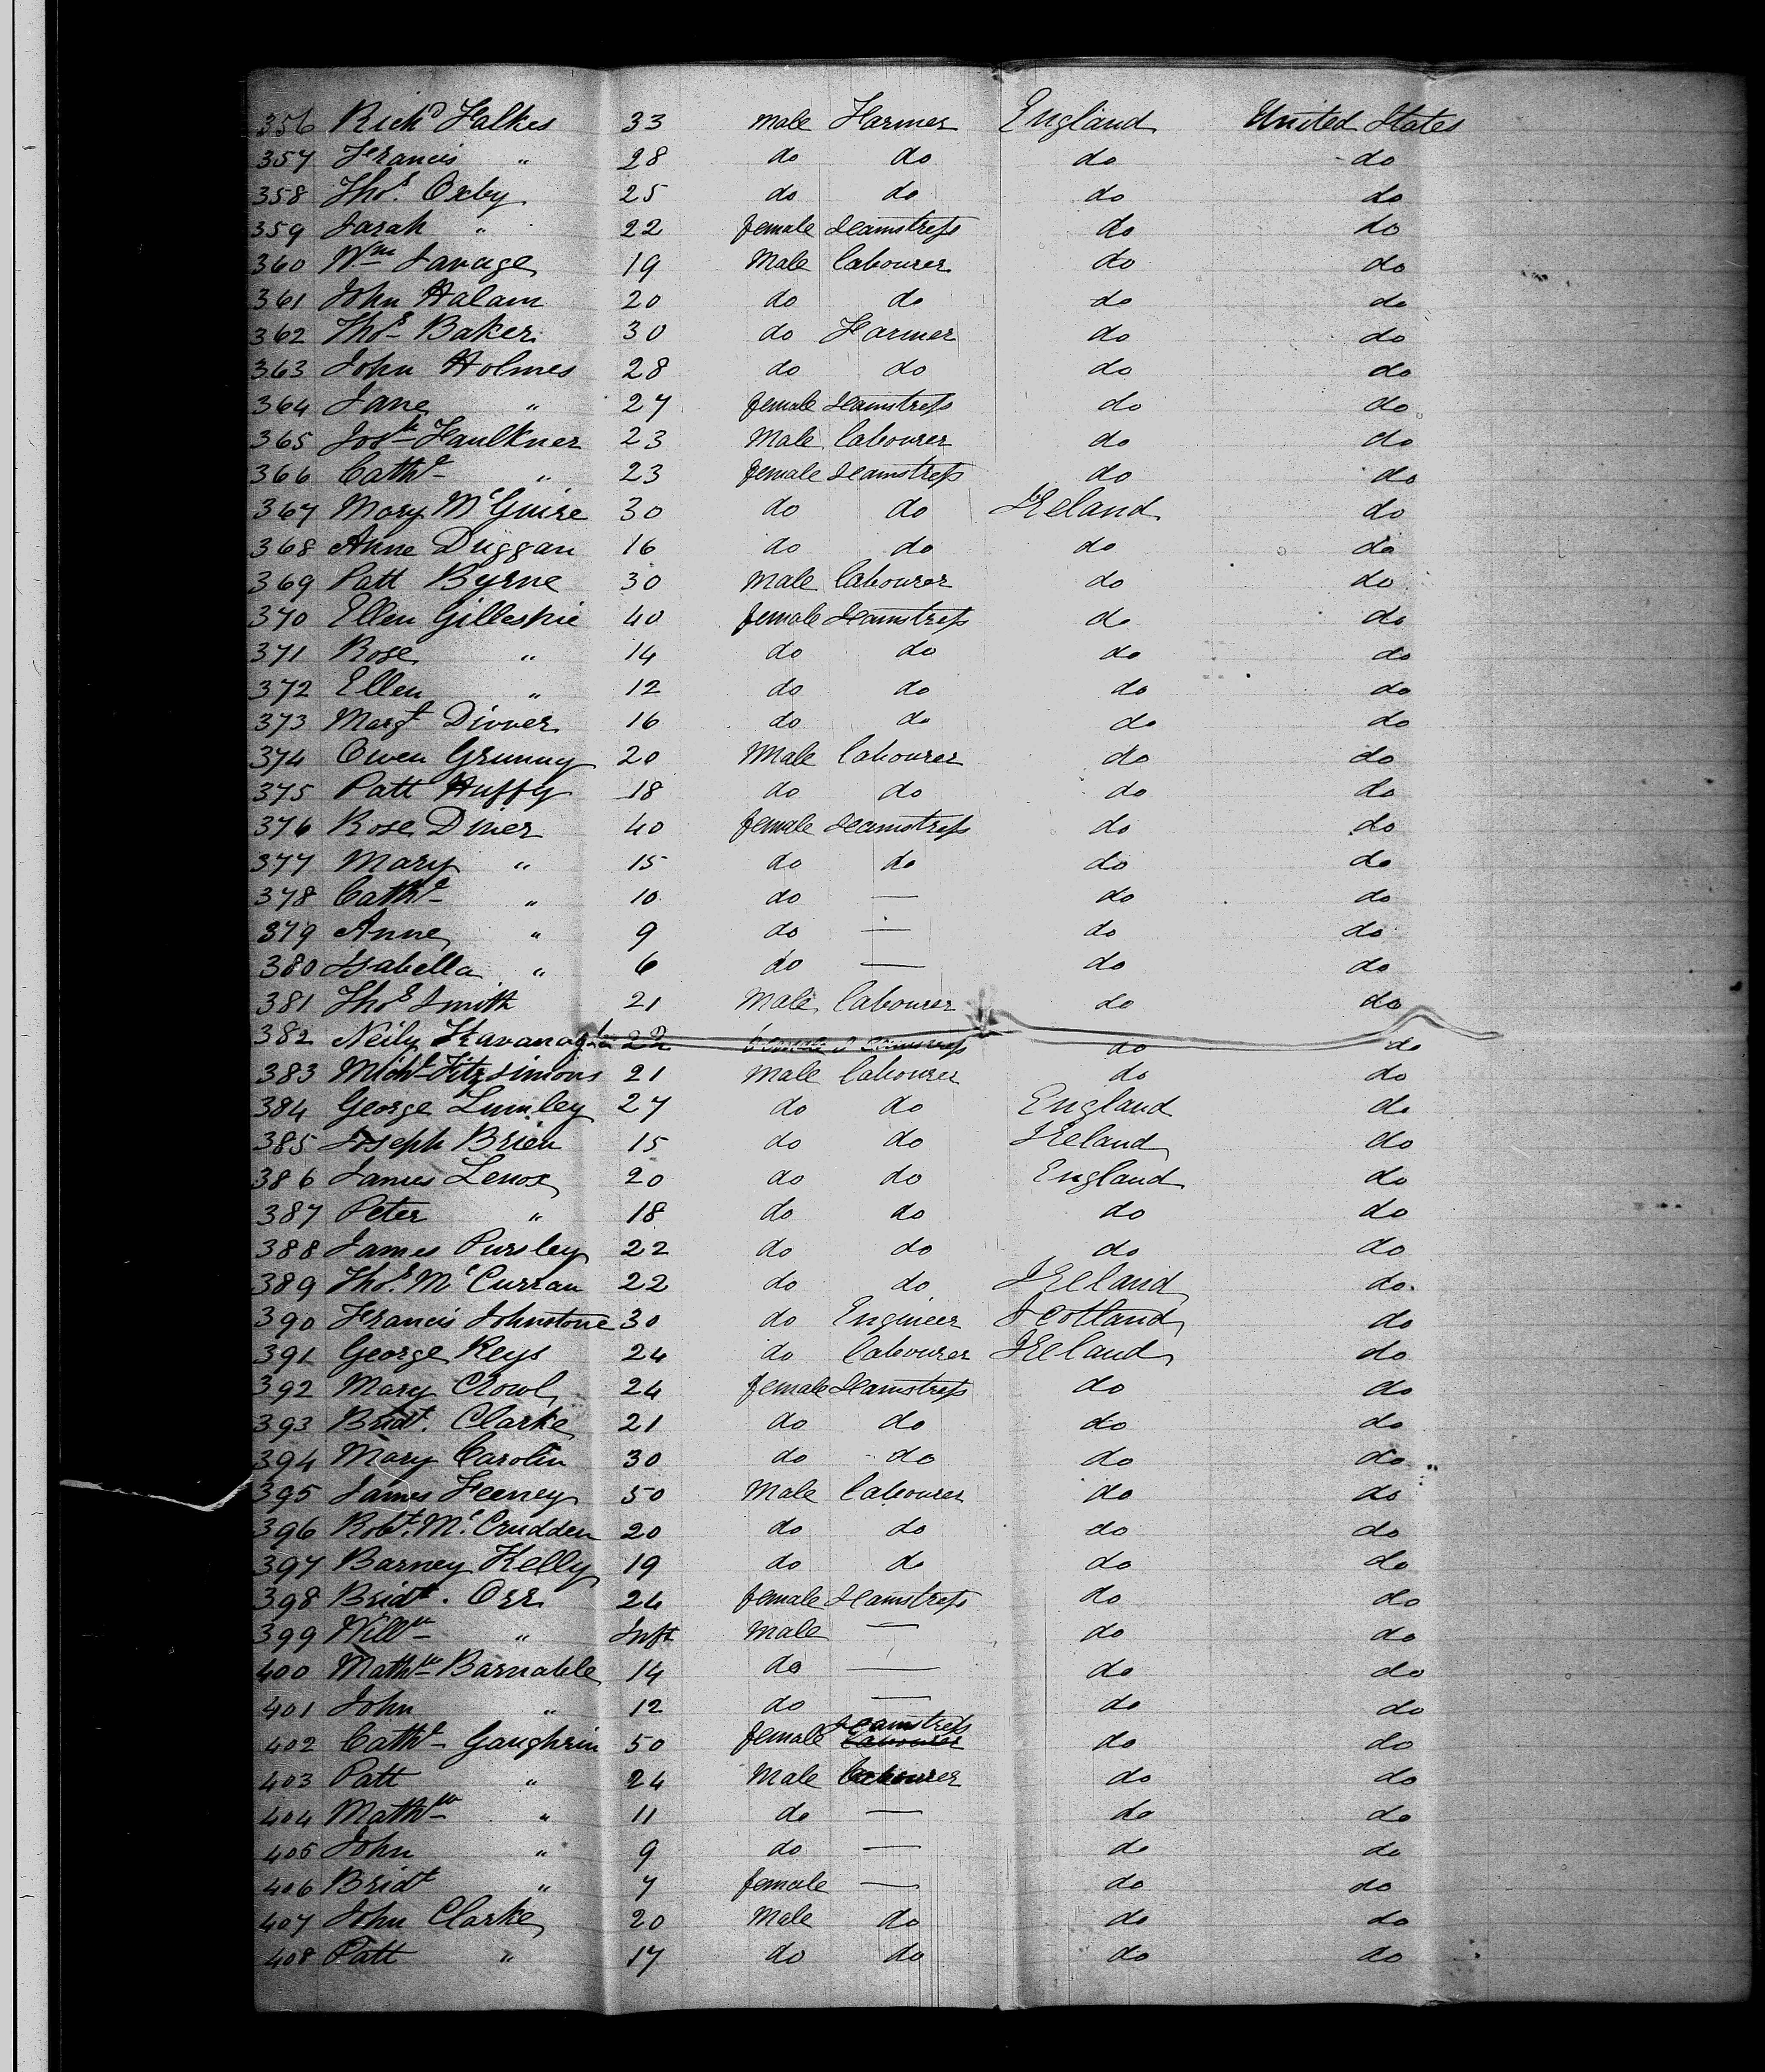 356 Richd Falkes 33 male Farmer England United States
357 Francis " 28 do do do do
358 Thos. Oxby 25 do do do do
359 Sarah " 22 female Seamstress do do
360 Wm Savage 19 Male labourer do do
361 John Halam 20 do do do do
362 Thos Baker 30 do Farmer do do
363 John Holmes 28 do do do do
364 Jane " 27 female Seamstress do do
365 Josh Faulkner 23 Male labourer do do
366 Cathe " 23 female Seamstress do do
367 Mary McGuire 30 do do Ireland do
368 Anne Duggan 16 do do do do
369 Patt Byrne 30 Male labourer do do
370 Ellen Gilleskie 40 female Seamstress do do
371 Rose " 14 do do do do
372 Ellen " 12 do do do do
373 Margt Divver 16 do do do do
374 Owen Grunny 20 Male labourer do do
375 Patt Huffy 18 do do do do
376 Rose Diver 40 female Seamstress do do
377 Mary " 15 do do do do
378 Cathe " 10 do — do do
379 Anne " 9 do — do do
380 Isabella " 6 do — do do
381 Thos Smith 21 Male labourer do do
382 Neily Kavanagh 22 female Seamstress do do
383 Michl Fitzsimons 21 Male labourer do do
384 George Lumley 27 do do England do
385 Joseph Brien 15 do do Ireland do
386 James Lenox 20 do do England do
387 Peter " 18 do do do do
388 James Pursley 22 do do do do
389 Thos. McCurran 22 do do Ireland do
390 Francis Johnstone 30 do Engineer Scotland do
391 George Keys 24 do labourer Ireland do
392 Mary Crowl 24 female Seamstress do do
393 Bridt. Clarke 21 do do do do
394 Mary Carolin 30 do do do do
395 James Feeney 50 Male labourer do do
396 Robt. McCrudden 20 do do do do
397 Barney Kelly 19 do do do do
398 Bridt. Orr 24 female Seamstress do do
399 Willm " Inft Male — do do
400 Mathw Barnable 14 do — do do
401 John " 12 do — do do
402 Cathe Gaughrin 50 female Seamstress labourer do do
403 Patt " 24 Male labourer do do
404 Mathw " 11 do — do do
405 John " 9 do — do do
406 Bridt " 7 female — do do
407 John Clarke 20 Male do do do
408 Patt " 17 do do do do